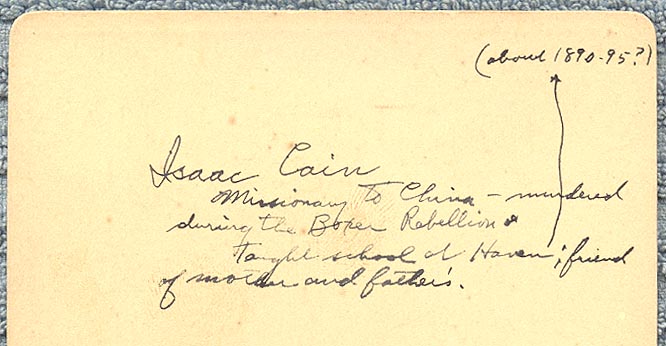 (about 1890-95?)
Isaac Cain
Missionary to China - murdered
during the Boxer Rebellion
Taught school at Haven; friend
of mother and father's.